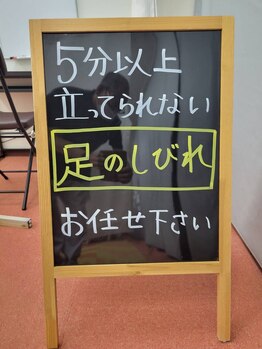 5分以上
立ってられない
足のしびれ
お任せ下さい